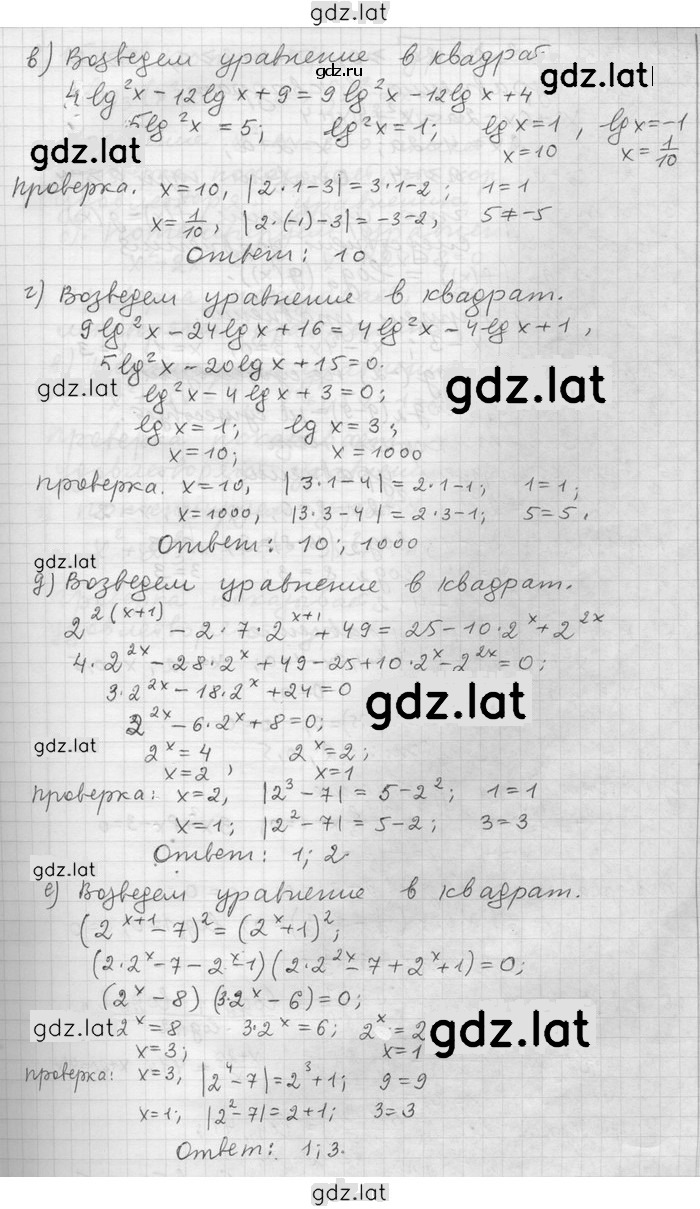 gdz.lat
в) Возведем уравнение в квадрат.
gdz.ru
gdz.lat
4lg²x − 12lg x + 9 = 9lg²x − 12lg x + 4
5lg²x = 5; lg²x = 1; lg x = 1, lg x = −1
gdz.lat
x = 10 x = 1/10
Проверка. x = 10, |2·1−3| = 3·1−2; 1 = 1
x = 1/10, |2·(−1)−3| = −3−2, 5 ≠ −5
Ответ: 10
г) Возведем уравнение в квадрат.
9lg²x − 24lg x + 16 = 4lg²x − 4lg x + 1,
5lg²x − 20lg x + 15 = 0.
gdz.lat
gdz.lat
lg²x − 4lg x + 3 = 0;
lg x = 1; lg x = 3;
x = 10; x = 1000
Проверка. x = 10, |3·1−4| = 2·1−1; 1 = 1;
x = 1000, |3·3−4| = 2·3−1; 5 = 5.
Ответ: 10; 1000
gdz.lat
д) Возведем уравнение в квадрат.
2^(2(x+1)) − 2·7·2^(x+1) + 49 = 25 − 10·2^x + 2^(2x)
4·2^(2x) − 28·2^x + 49 − 25 + 10·2^x − 2^(2x) = 0;
3·2^(2x) − 18·2^x + 24 = 0
gdz.lat
2^(2x) − 6·2^x + 8 = 0;
gdz.lat
2^x = 4, 2^x = 2;
x = 2 x = 1
Проверка: x = 2, |2³ − 7| = 5 − 2²; 1 = 1
x = 1; |2² − 7| = 5 − 2; 3 = 3
Ответ: 1; 2
gdz.lat
е) Возведем уравнение в квадрат.
(2^(x+1) − 7)² = (2^x + 1)²;
(2·2^x − 7 − 2^x − 1)(2·2^(2x) − 7 + 2^x + 1) = 0;
(2^x − 8)(3·2^x − 6) = 0;
gdz.lat
2^x = 8 3·2^x = 6; 2^x = 2
gdz.lat
x = 3; x = 1
Проверка: x = 3, |2⁴ − 7| = 2³ + 1; 9 = 9
x = 1; |2² − 7| = 2 + 1; 3 = 3
Ответ: 1; 3.
gdz.lat